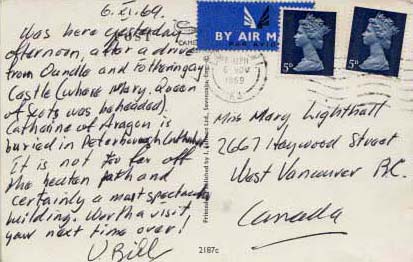 6.XI.69.
Was here yesterday
afternoon, after a drive
from Oundle and Fotheringay
Castle (where Mary, Queen
of Scots was beheaded).
Catharine of Aragon is
buried in Peterborough Cathedral
It is not too far off
the beaten path and
certainly a most spectacular
building. Worth a visit,
your next time over!
Bill
BY AIR MAIL
PAR AVION
6 NOV
1969
5D
5D
Miss Mary Lighthall
2667 Haywood Street
West Vancouver B.C.
Canada
2187c